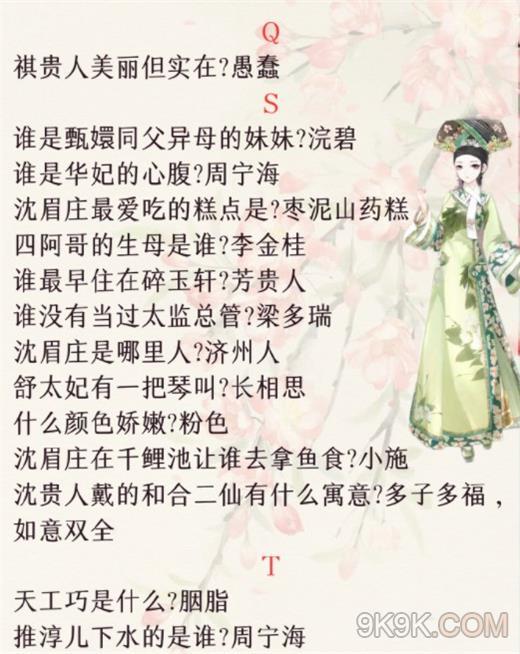 Q
祺贵人美丽但实在?愚蠢
S
谁是甄嬛同父异母的妹妹?浣碧
谁是华妃的心腹?周宁海
沈眉庄最爱吃的糕点是?枣泥山药糕
四阿哥的生母是谁?李金桂
谁最早住在碎玉轩?芳贵人
谁没有当过太监总管?梁多瑞
沈眉庄是哪里人?济州人
舒太妃有一把琴叫?长相思
什么颜色娇嫩?粉色
沈眉庄在千鲤池让谁去拿鱼食?小施
沈贵人戴的和合二仙有什么寓意?多子多福，
如意双全
T
天工巧是什么?胭脂
推淳儿下水的是谁?周宁海
9K9K.COM